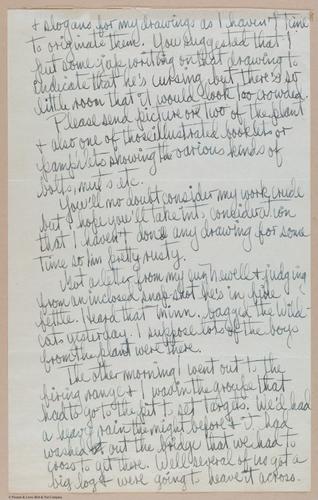 & slogans for my drawings as I haven't time
to originate them. You suggested that I
put some jap writing on that drawing to
indicate that he's cursing but there's so
little room that it would look too crowded.
Please send picture or two of the plant
& also one of those illustrated booklets or
pamplets showing the various kinds of
bolts, nuts etc.
You'll no doubt consider my work crude
but I hope you'll take into consideration
that I haven't done any drawing for some
time so I'm pretty rusty.
Got a letter from my Newell & judging
from an inclosed snapshot he's in fine
fettle. Heard that Minn. bagged the Wild
cats yesterday. I suppose lots of the boys
from the plant were there.
The other morning I went out to the
firing range & I was in the groupe that
had to go to the pit to set targets. We'd had
a heavy rain the night before & it had
washed out the bridge that we had to
cross to get there. Well several of us got a
big log & were going to heave it across.